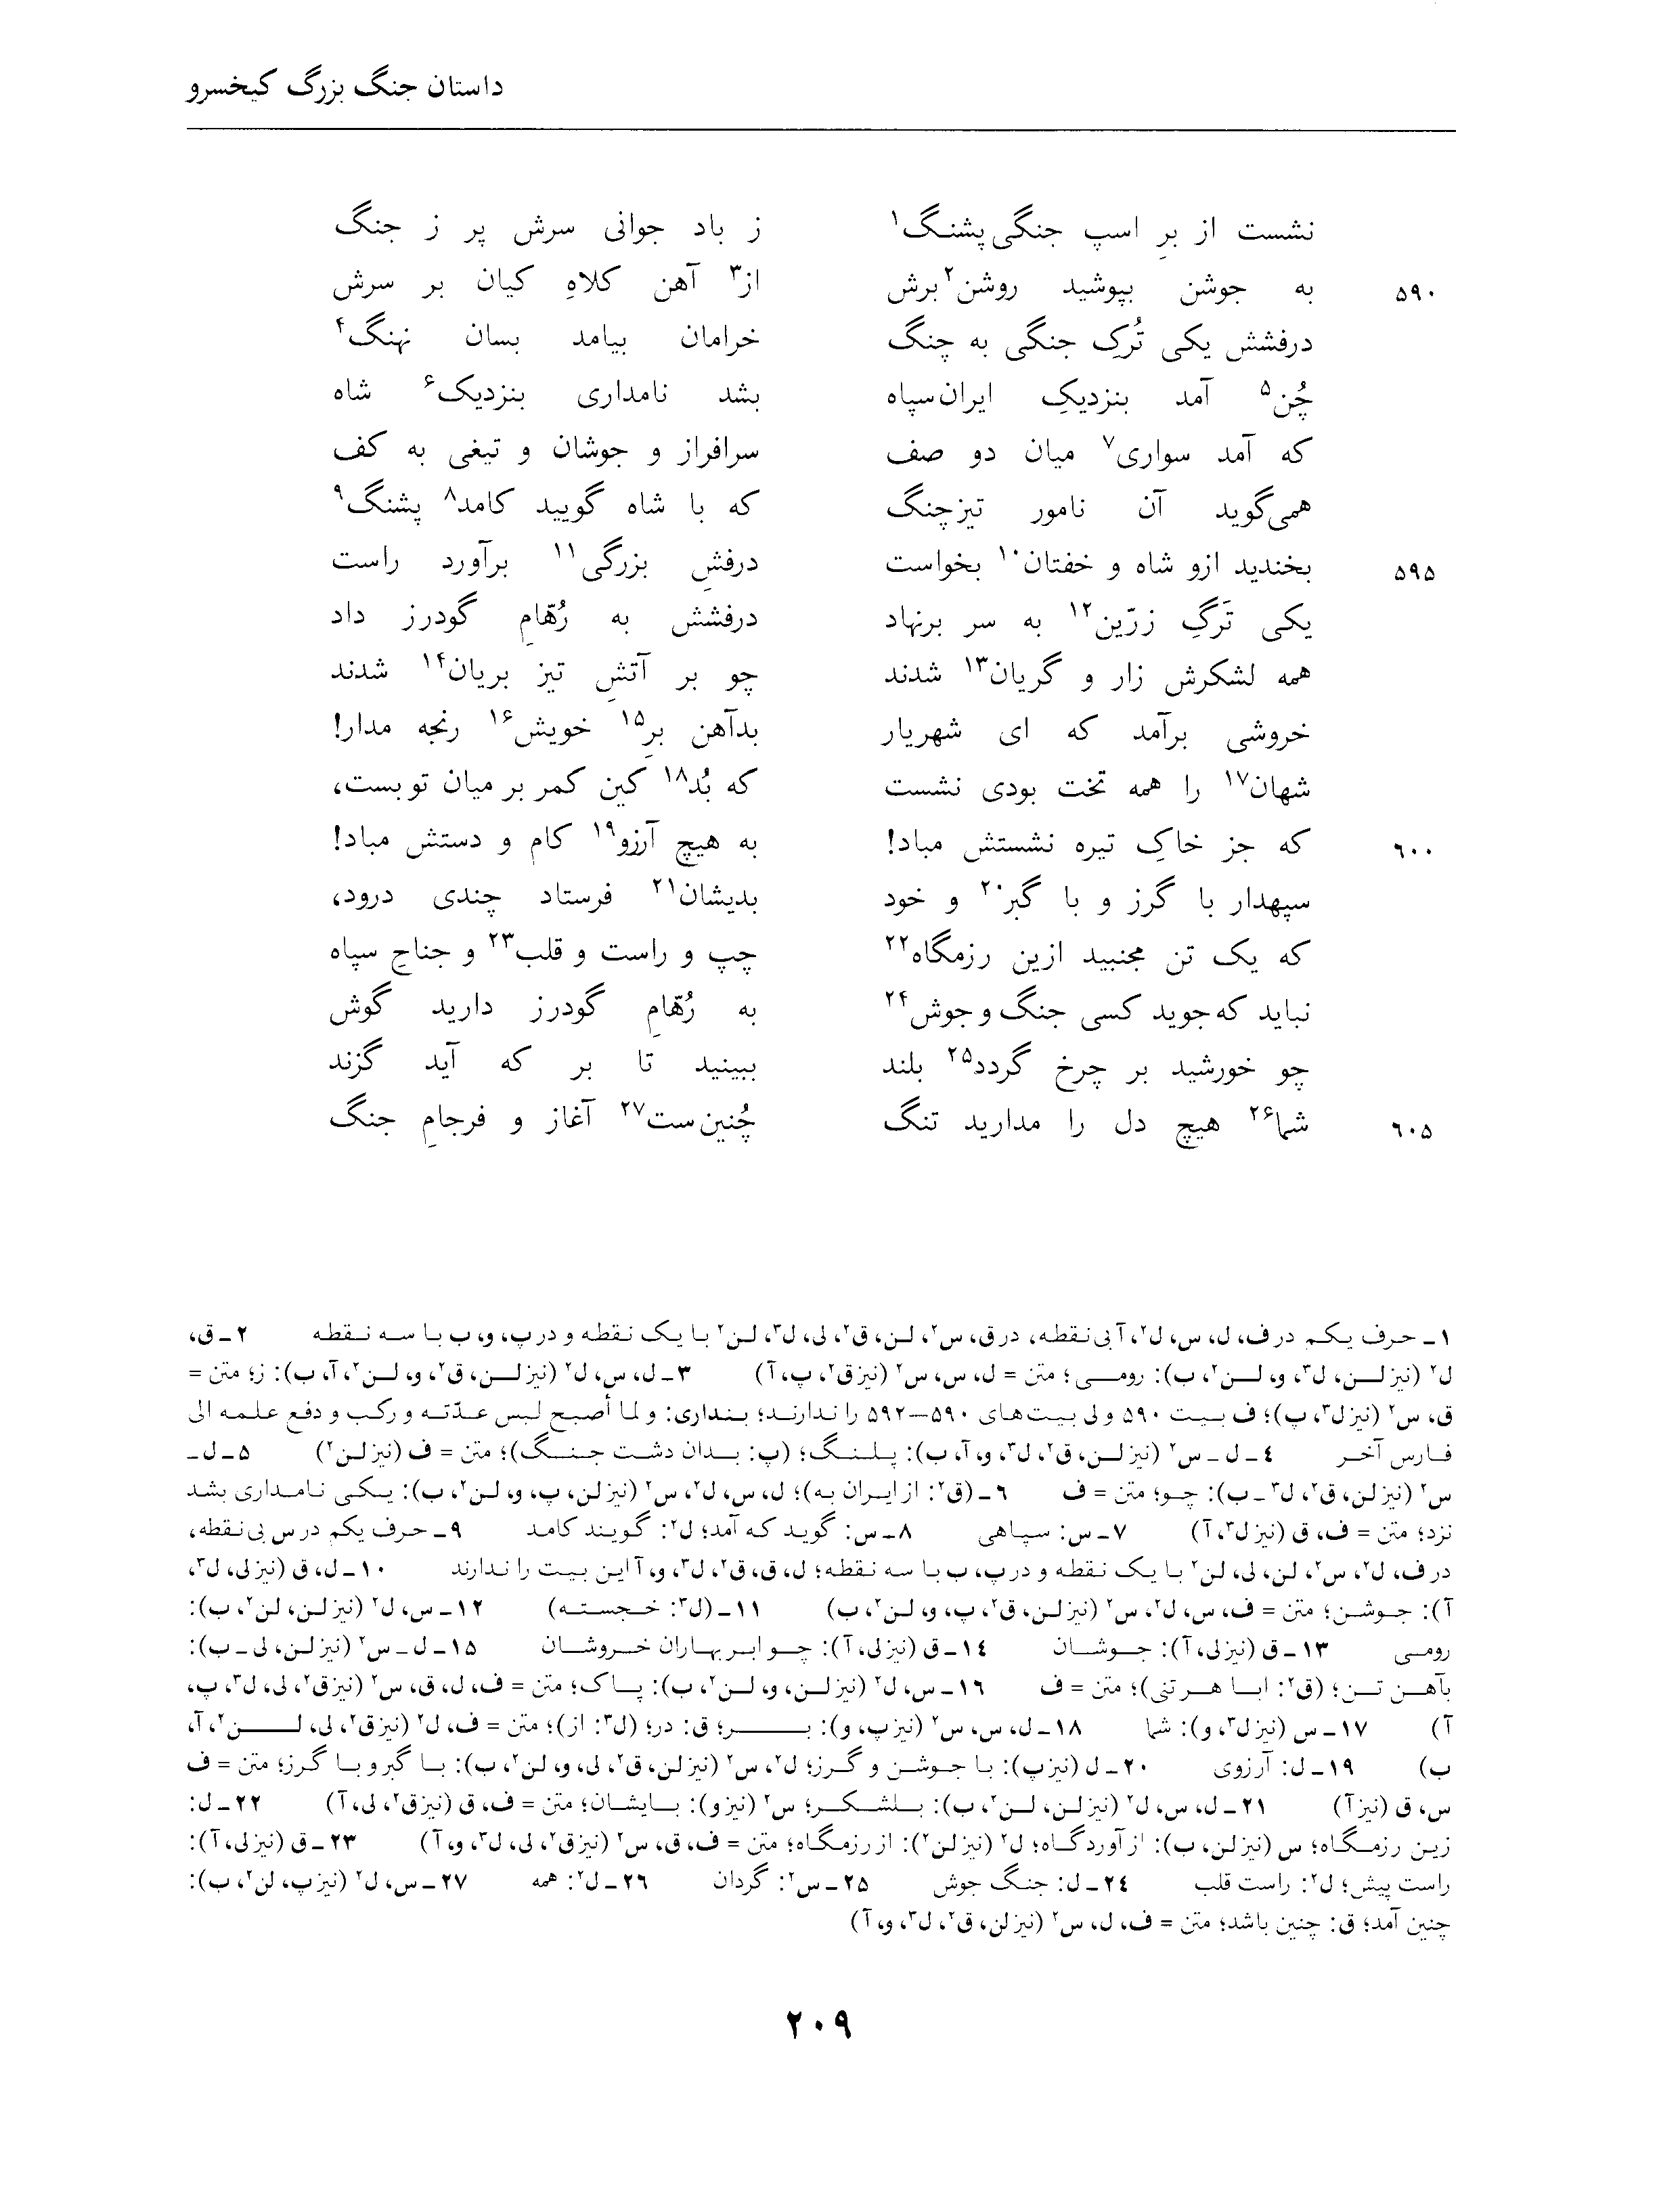 داستان جنگ بزرگ کیخسرو
نشست از برِ اسپ جنگی پشنگ۱ ز باد جوانی سرش پر ز جنگ
۵۹۰ به جوشن بپوشید روشن۲ برش از۳ آهن کلاهِ کیان بر سرش
درفشش یکی تُرکِ جنگی به چنگ خرامان بیامد بسان نهنگ۴
چُن۵ آمد بنزدیکِ ایران‌سپاه بشد نامداری بنزدیک۶ شاه
که آمد سواری۷ میان دو صف سرافراز و جوشان و تیغی به کف
همی‌گوید آن نامور تیزچنگ که با شاه گویید کامد۸ پشنگ۹
۵۹۵ بخندید ازو شاه و خفتان۱۰ بخواست درفشِ بزرگی۱۱ برآورد راست
یکی تَرگِ زرّین۱۲ به سر برنهاد درفشش به رُهّامِ گودرز داد
همه لشکرش زار و گریان۱۳ شدند چو بر آتشِ تیز بریان۱۴ شدند
خروشی برآمد که ای شهریار بدآهن برِ۱۵ خویش۱۶ رنجه مدار!
شهان۱۷ را همه تخت بودی نشست که بُد۱۸ کین کمر بر میان تو بست،
۶۰۰ که جز خاکِ تیره نشستش مباد! به هیچ آرزو۱۹ کام و دستش مباد!
سپهدار با گرز و با گبر۲۰ و خود بدیشان۲۱ فرستاد چندی درود،
که یک تن مجنبید ازین رزمگاه۲۲ چپ و راست و قلب۲۳ و جناحِ سپاه
نباید که جوید کسی جنگ و جوش۲۴ به رُهّامِ گودرز دارید گوش
چو خورشید بر چرخ گردد۲۵ بلند ببینید تا بر که آید گزند
۶۰۵ شما۲۶ هیچ دل را مدارید تنگ چُنین‌ست۲۷ آغاز و فرجامِ جنگ
۱ـ حرف یکم در ف، ل، س، ل۲، آ بی‌نقطه، در ق، س۲، لن، ق۲، لی، ل۳، لن۲ با یک نقطه و در پ، و، ب با سه نقطه ۲ـ ق،
ل۲ (نیز لن، ل۳، و، لن۲، ب): رومی؛ متن = ل، س، س۲ (نیز ق۲، پ، آ) ۳ـ ل، س، ل۲ (نیز لن، ق۲، و، لن۲، آ، ب): ز؛ متن =
ق، س۲ (نیز ل۳، پ)؛ ف بیت ۵۹۰ و لی بیت‌های ۵۹۰—۵۹۲ را ندارند؛ بنداری: و لما أصبح لبس عدّته و رکب و دفع علمه الی
فارس آخر ۴ـ ل ـ س۲ (نیز لن، ق۲، ل۳، و، آ، ب): پلنگ؛ (پ: بدان دشت جنگ)؛ متن = ف (نیز لن۲) ۵ـ ل ـ
س۲ (نیز لن، ق۲، ل۳ ـ ب): چو؛ متن = ف ۶ـ (ق۲: از ایران به)؛ ل، س، ل۲، س۲ (نیز لن، پ، و، لن۲، ب): یکی نامداری بشد
نزد؛ متن = ف، ق (نیز ل۳، آ) ۷ـ س: سپاهی ۸ـ س: گوید که آمد؛ ل۲: گویند کامد ۹ـ حرف یکم در س بی‌نقطه،
در ف، ل۲، س۲، لن، لی، لن۲ با یک نقطه و در پ، ب با سه نقطه؛ ل، ق، ق۲، ل۳، و، آ این بیت را ندارند ۱۰ـ ل، ق (نیز لی، ل۳،
آ): جوشن؛ متن = ف، س، ل۲، س۲ (نیز لن، ق۲، پ، و، لن۲، ب) ۱۱ـ (ل۳: خجسته) ۱۲ـ س، ل۲ (نیز لن، لن۲، ب):
رومی ۱۳ـ ق (نیز لی، آ): جوشان ۱۴ـ ق (نیز لی، آ): چو ابر بهاران خروشان ۱۵ـ ل ـ س۲ (نیز لن، لی ـ ب):
بآهن تن؛ (ق۲: ابا هر تنی)؛ متن = ف ۱۶ـ س، ل۲ (نیز لن، و، لن۲، ب): پاک؛ متن = ف، ل، ق، س۲ (نیز ق۲، لی، ل۳، پ،
آ) ۱۷ـ س (نیز ل۳، و): شما ۱۸ـ ل، س، س۲ (نیز پ، و): بر؛ ق: در؛ (ل۳: از)؛ متن = ف، ل۲ (نیز ق۲، لی، لن۲، آ،
ب) ۱۹ـ ل: آرزوی ۲۰ـ ل (نیز پ): با جوشن و گرز؛ ل۲، س۲ (نیز لن، ق۲، لی، و، لن۲، ب): با گبر و با گرز؛ متن = ف
س، ق (نیز آ) ۲۱ـ ل، س، ل۲ (نیز لن، لن۲، ب): بلشکر؛ س۲ (نیز و): بایشان؛ متن = ف، ق (نیز ق۲، لی، آ) ۲۲ـ ل:
زین رزمگاه؛ س (نیز لن، ب): از آوردگاه؛ ل۲ (نیز لن۲): از رزمگاه؛ متن = ف، ق، س۲ (نیز ق۲، لی، ل۳، و، آ) ۲۳ـ ق (نیز لی، آ):
راست پیش؛ ل۲: راست قلب ۲۴ـ ل: جنگ جوش ۲۵ـ س۲: گردان ۲۶ـ ل۲: همه ۲۷ـ س، ل۲ (نیز پ، لن۲، ب):
چنین آمد؛ ق: چنین باشد؛ متن = ف، ل، س۲ (نیز لن، ق۲، ل۳، و، آ)
۲۰۹